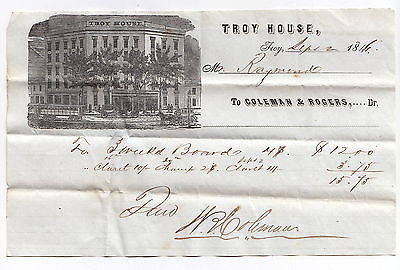 TROY HOUSE
TROY HOUSE,
Troy, Sept 2 1846.
M Raymond
To COLEMAN & ROGERS,.... Dr.
To 3 weeks Board 4$ $12.00
Claret 10/- Champ 2$ Claret 3.75
15.75
Paid
W. Coleman